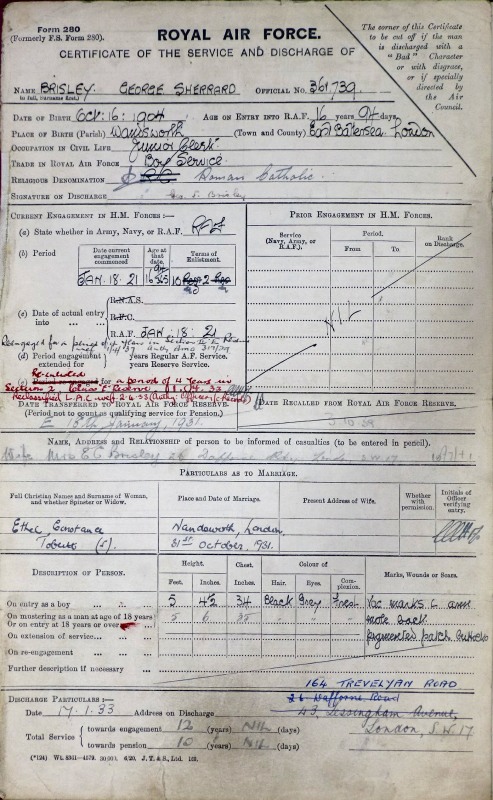 Form 280
(Formerly F.S. Form 280).
ROYAL AIR FORCE.
CERTIFICATE OF THE SERVICE AND DISCHARGE OF
The corner of this Certificate
to be cut off if the man
is discharged with a
"Bad" Character
or with disgrace,
or if specially
directed by
the Air
Council.
NAME BRISLEY. GEORGE SHERRARD OFFICIAL NO. 361,739.
(In full, Surname first.)
DATE OF BIRTH Oct: 16: 1904 AGE ON ENTRY INTO R.A.F. 16 years 94 days
PLACE OF BIRTH (Parish) Wandsworth (Town and County) East Battersea. London
OCCUPATION IN CIVIL LIFE Junior Clerk
TRADE IN ROYAL AIR FORCE Boy Service
RELIGIOUS DENOMINATION Roman Catholic.
SIGNATURE ON DISCHARGE Geo. S. Brisley
CURRENT ENGAGEMENT IN H.M. FORCES :—
(a) State whether in Army, Navy, or R.A.F. R.A.F.
(b) Period
Date current engagement commenced
Age at that date.
Terms of Enlistment.
JAN. 18. 21
(c) Date of actual entry into
R.N.A.S.
R.F.C.
R.A.F. JAN. 18: 21
(d) Period engagement extended for
years Regular A.F. Service.
years Reserve Service.
Re-enlisted for a period of 4 years in
Section 2 Class E Reserve
Reclassified L.A.C. w.e.f. 2.6.33
DATE TRANSFERRED TO ROYAL AIR FORCE RESERVE.
(Period not to count as qualifying service for Pension.)
E 18th January, 1931.
PRIOR ENGAGEMENT IN H.M. FORCES.
Service (Navy, Army, or R.A.F.)
Period.
From
To
Rank on Discharge.
NIL
DATE RECALLED FROM ROYAL AIR FORCE RESERVE.
NAME, ADDRESS AND RELATIONSHIP of person to be informed of casualties (to be entered in pencil).
Mrs E C Brisley
PARTICULARS AS TO MARRIAGE.
Full Christian Names and Surname of Woman, and whether Spinster or Widow.
Place and Date of Marriage.
Present Address of Wife.
Whether with permission.
Initials of Officer verifying entry.
Ethel Constance
(S).
Wandsworth, London.
31st October, 1931.
DESCRIPTION OF PERSON.
Height.
Feet.
Inches.
Chest.
Inches.
Colour of
Hair.
Eyes.
Complexion.
Marks, Wounds or Scars.
On entry as a boy 5 4½ 34 Black Grey Fresh Vac marks L arm
On mustering as a man at age of 18 years 5 6 35 mole back
or on entry at 18 years or over
pigmented patch
On extension of service...
On re-engagement
Further description if necessary
164 TREVELYAN ROAD
DISCHARGE PARTICULARS :—
Date 17.1.33 Address on Discharge 43, Lessingham Avenue,
London, S.W.17
Total Service
towards engagement 12 (years) Nil (days)
towards pension 10 (years) Nil (days)
(*124) Wt. 8341—4579. 30,000. 6/20. J. T. & S., Ltd. 103.